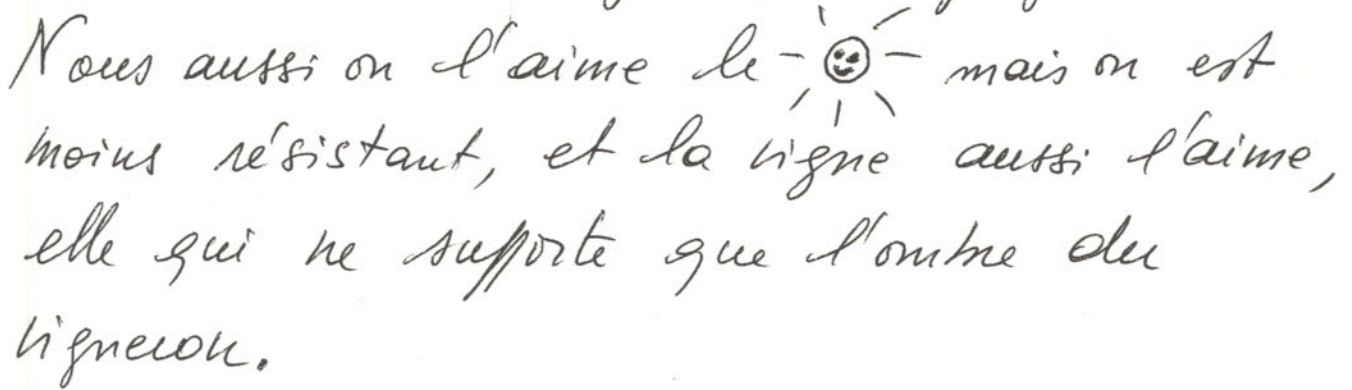 Nous aussi on l'aime le mais on est
moins résistant, et la vigne aussi l'aime,
elle qui ne supporte que l'ombre du
vigneron.